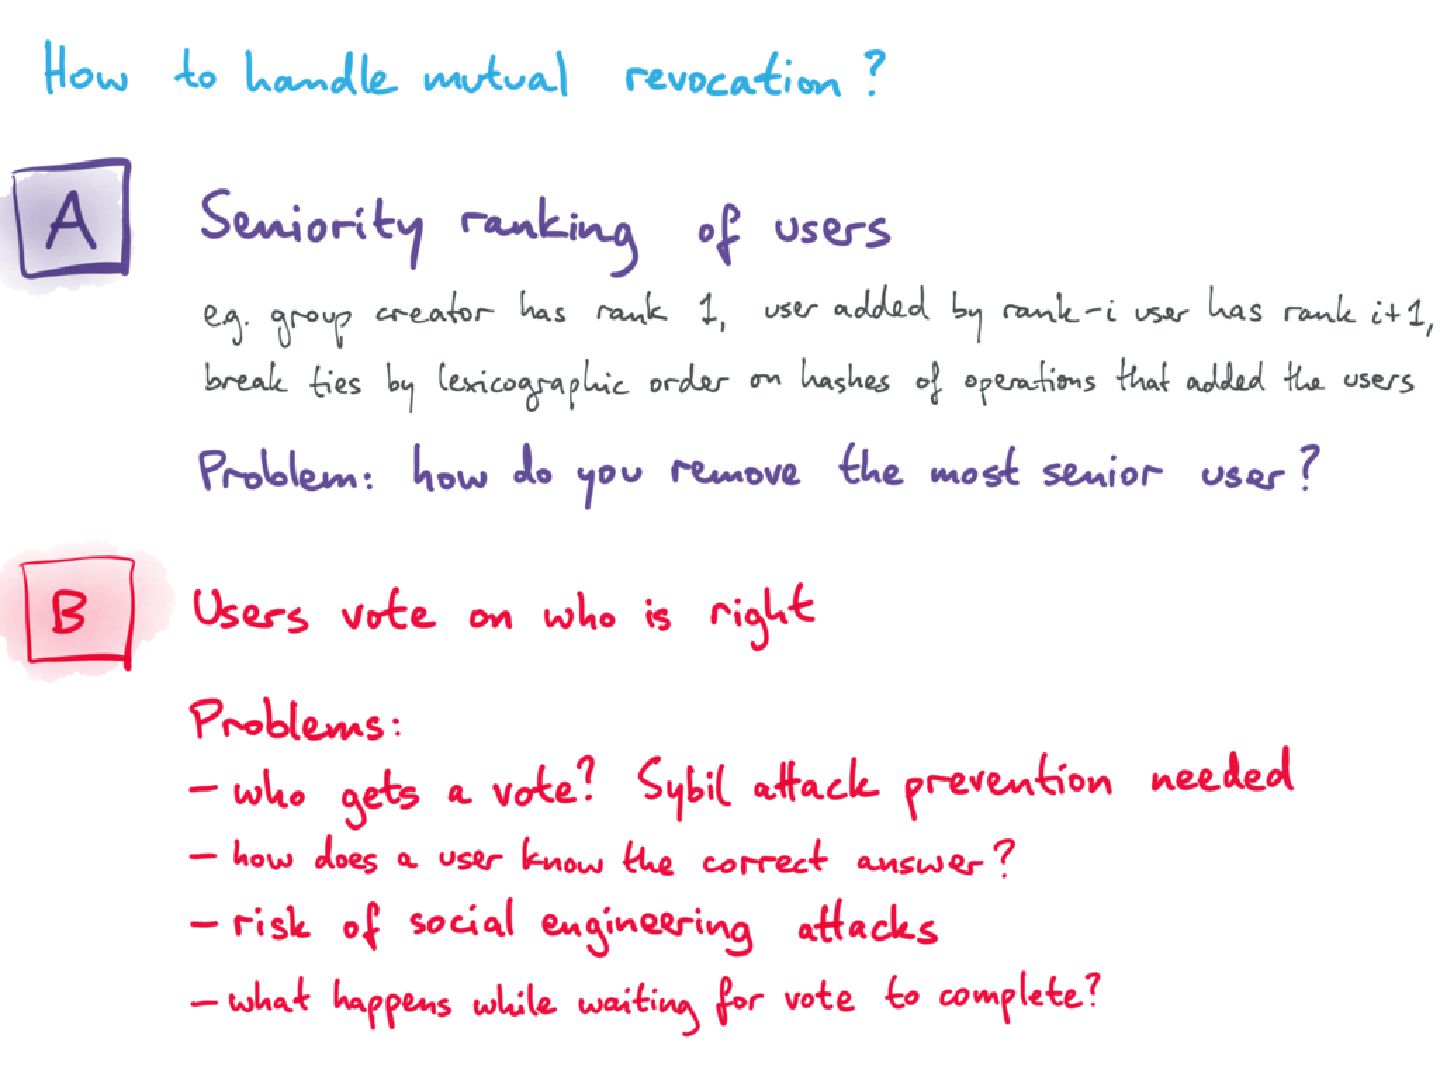 How to handle mutual revocation?
A
Seniority ranking of users
e.g. group creator has rank 1, user added by rank-i user has rank i+1,
break ties by lexicographic order on hashes of operations that added the users
Problem: how do you remove the most senior user?
B
Users vote on who is right
Problems:
- who gets a vote? Sybil attack prevention needed
- how does a user know the correct answer?
- risk of social engineering attacks
- what happens while waiting for vote to complete?